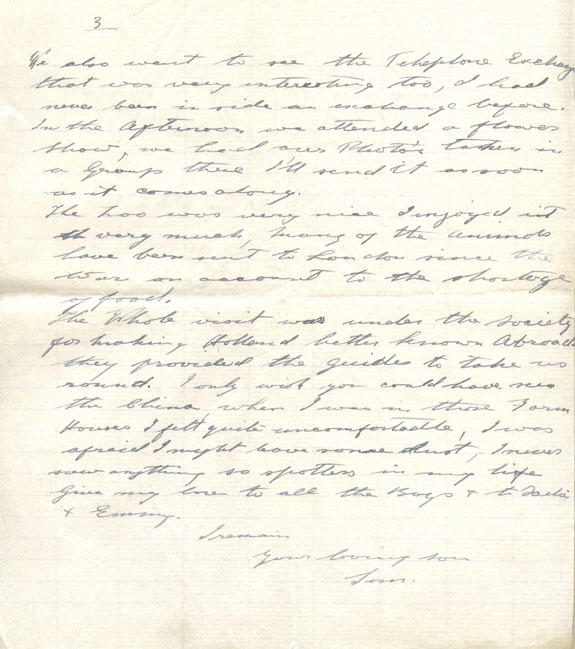 3
We also went to see the Telephone Exchange
that was very interesting too, I had
never been in side an exchange before.
In the Afternoon we attended a flower
show, we had our Photo's taken in
a Group there I'll send it as soon
as it comes along.
The Zoo was very nice I injoyed it
very much, many of the animals
have been sent to London since the
War on account to the shortage
of food.
The Whole visit was under the Society
for making Holland better known Abroad
they provided the guides to take us
round. I only wish you could have seen
the China, when I was in those Farm
Houses I felt quite uncomfortable, I was
afraid I might leave some dust, I never
saw anything so spotless in my life
Give my love to all the Boys & to
& Emmy.
I remain
Your loving son
Tom.